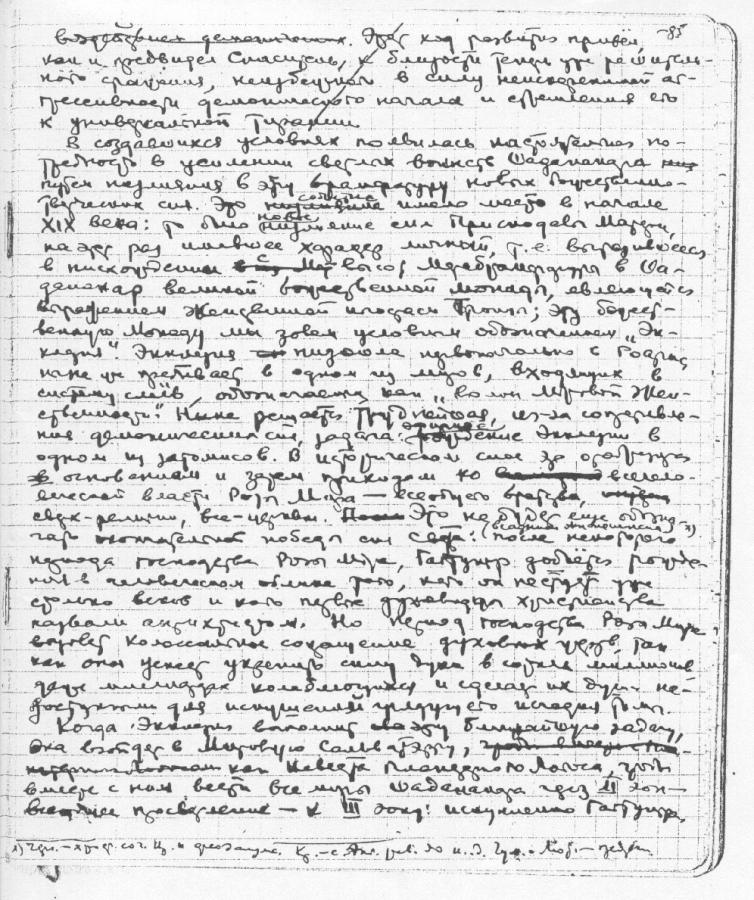 воздействием демонических. Этот ход развития привёл, -85
как и предвидел Спаситель, к близости теперь уже решитель-
ного сражения, неизбежного в силу неискоренимой аг-
рессивности демонического начала и стремления его
к универсальной тирании.
В создавшихся условиях появилась настоятельная по-
требность в усилении светлых воинств Шаданакара
путём излияния в эту брамфатуру новых божественно-
творческих сил. Это событие имело место в начале
XIX века: то было новое излияние сил Приснодевы Марии,
на этот раз имевшее характер личный, т.е. выразившееся
в нисхождении с высот Метабрамфатуры в Ша-
данакар великой божественной монады, являющейся
выражением Женственной ипостаси Троицы; эту божест-
венную Монаду мы зовём условным обозначением "Эк-
клезия". Экклезия низошла первоначально в
ныне уже пребывает в одном из миров, входящих в
систему слоёв, обозначаемых как "волны Мировой Жен-
ственности". Ныне решается труднейшая, из-за сопротивле-
ния демонических сил, задача: рождение Экклезии в
одном из затомисов. В историческом слое это отобразится
основанием и затем приходом ко всечело-
веческой власти Розы Мира — всеобщего братства,
сверх-религии, все-церкви. Это не будет ещё означ-
чать окончательной победы сил Света: (всадник Апокалипсиса 1)) после некоторого
периода господства Розы Мира, Гагтунгр добьётся рожде-
ния в человеческом облике того, кого он пестует уже
столько веков и кого первые духовидцы христианства
назвали антихристом. Но период господства Розы Мира
вызовет колоссальное сокращение духовных жертв, так
как она успеет укрепить силу духа в сотнях миллионов,
даже миллиардах колеблющихся и сделает их души не-
доступными для искушений грядущего исчадия тьмы.
Когда Экклезия выполнит эту ближайшую задачу,
она взойдёт в Мировую Сальватэрру,
как Невеста Планетарного Логоса, чтобы
вместе с ним вести все миры Шаданакара через II эон —
просветление — к III эону: искуплению Гагтунгра.